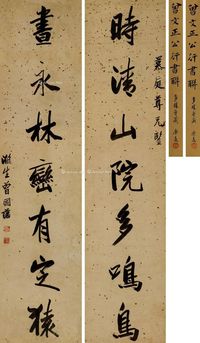 曾文正公行書聯
曾文正公行書聯
尊兄
時清山院多鳴鳥
晝永林巒有定猿
滌生曾國藩